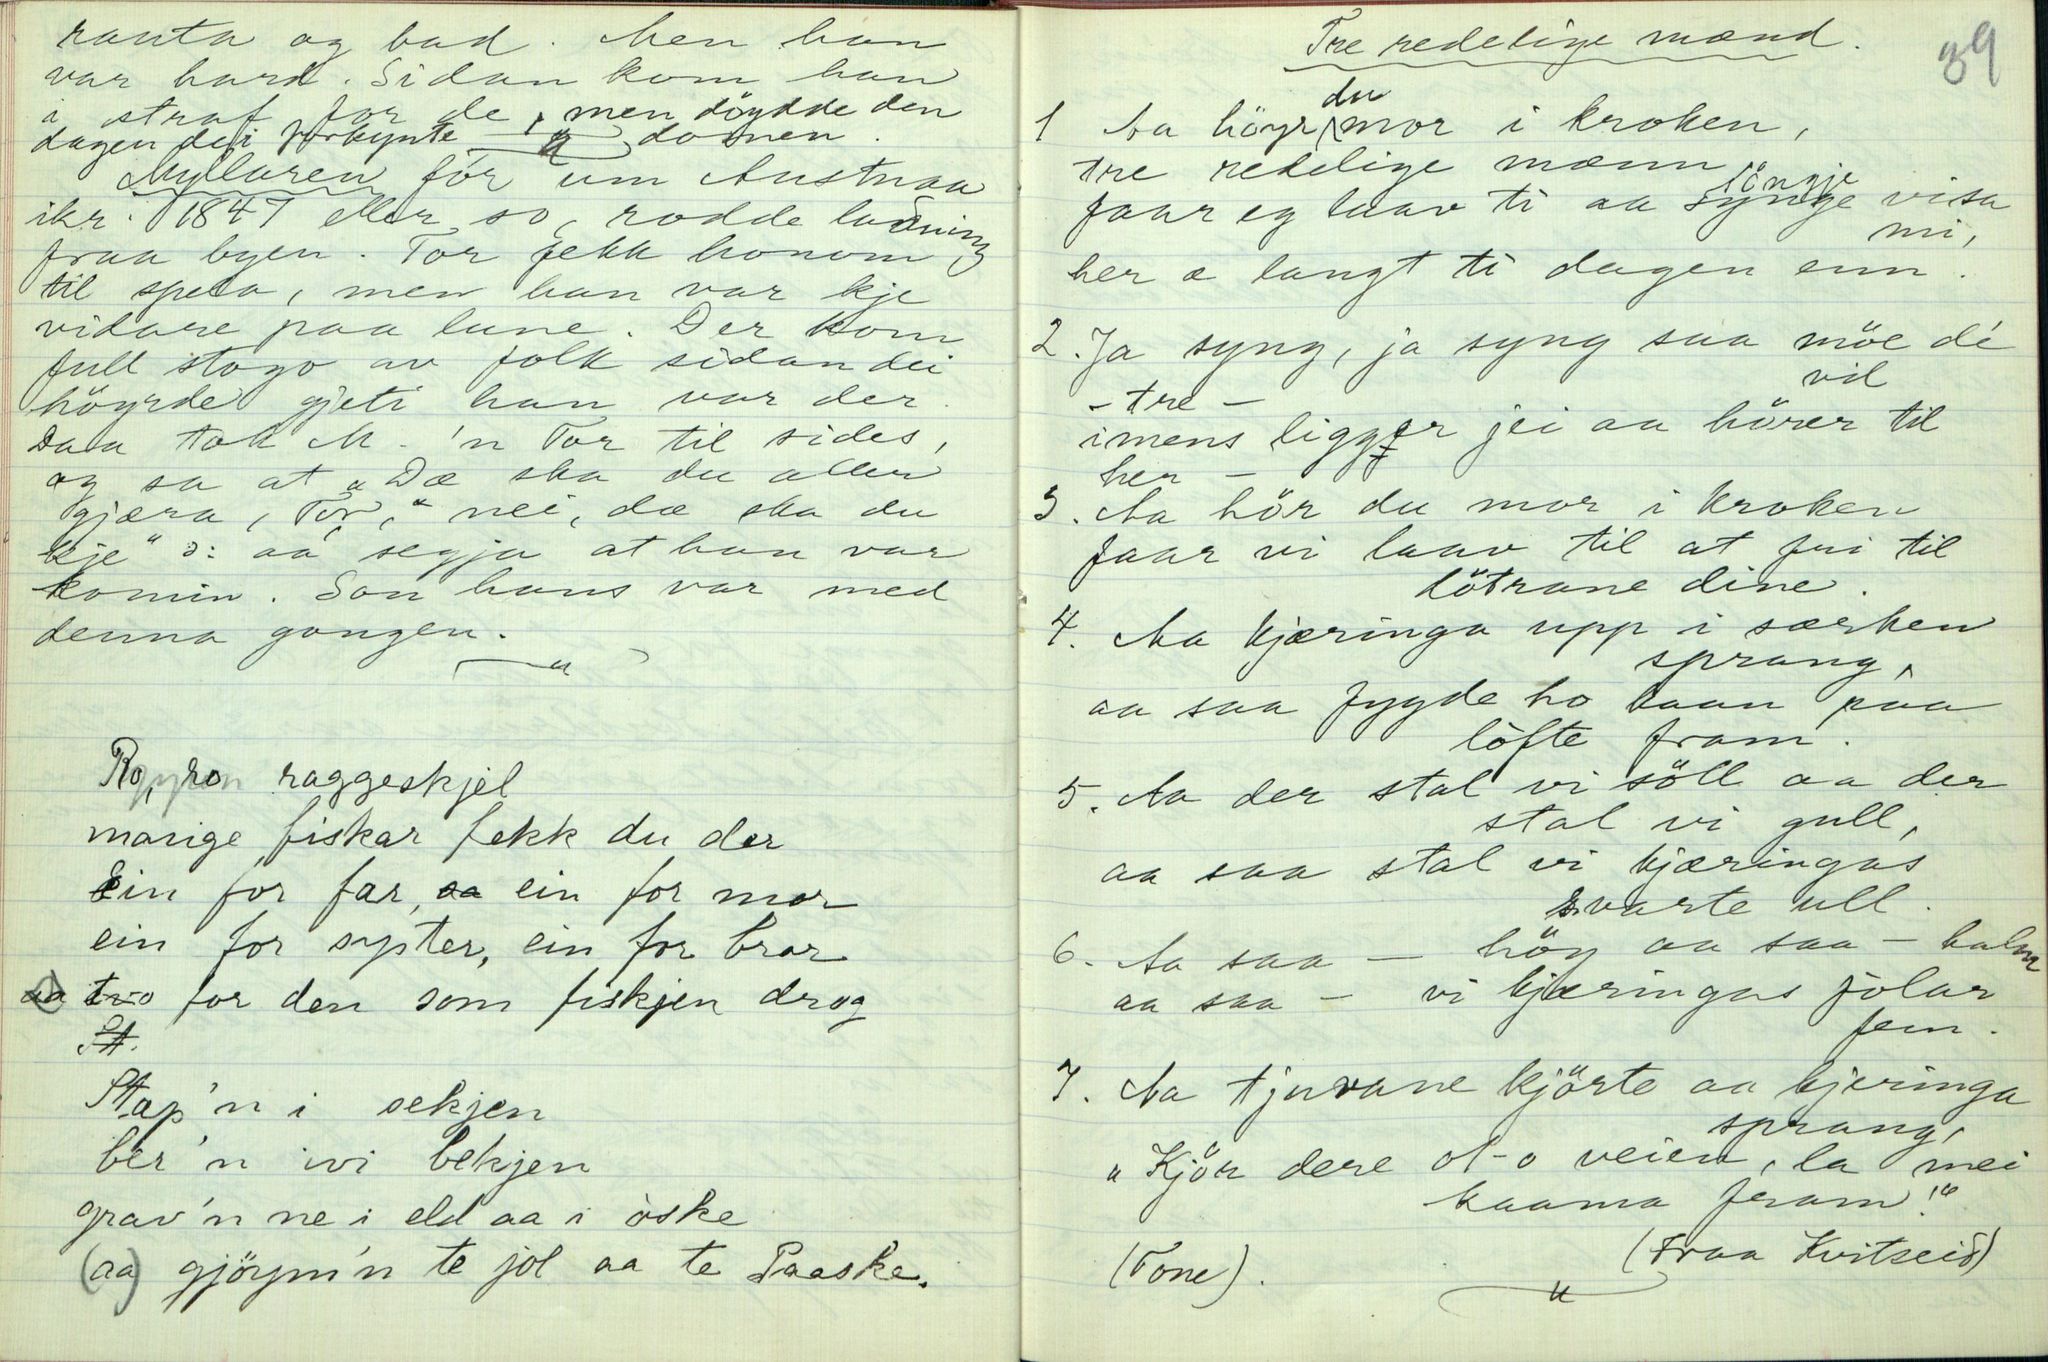 ranta og bad. Men han
var hard. Sidan kom han
i straf for de, men döydde den
dagen dei forkynte domen.
Myllaren fór um Austnaa
ikr. 1847 eller so, rodde ladning
fraa byen. Tor fekk honom
til spela, men han var kje
vidare paa lune. Der kom
full stogo av folk sidan dei
höyrde gjeti han var der.
Daa tok M. 'n Tor til sides,
og sa at „Dæ ska du aller
gjæra, Tor," nei, dæ ska du
kje" ɔ: aa segja at han var
komin. Son hans var med
denna gongen.
Ro, ron raggeskjel
mange fiskar fekk du der
Ein for far, aa ein for mor
ein for syster, ein for bror
aa tvo for den som fiskjen drog
St.
Stap'n i sekjen
ber'n ivi bekjen
grav'n ne i eld aa i òske
(aa) gjöym'n te jol aa te Paaske.
39
Tre redelige mænd.
1 Aa höyr du mor i kroken,
tre redelige mænn
söngje
faar eg laav ti aa synge visa
mi,
her æ langt ti dagen enn.
2. Ja syng, ja syng saa möe de
vil
- tre -
imens ligger jei aa hörer til
her -
3. Aa hör du mor i kroken
faar vi laav til at fri til
dötrane dine.
4. Aa kjæringa upp i særken
sprang,
aa saa fygde ho kaan paa
löfte fram.
5. Aa der stal vi söll aa der
stal vi gull,
aa saa stal vi kjæringas
svarte ull.
6. Aa saa - höy aa saa - halm
aa saa - vi kjæringas fólar
fem.
7. Aa tjuvane kjörte aa kjeringa
sprang,
„Kjör dere ot-o veien, la mei
kaama fram!"
(Tone). (Fraa Kvitseid)